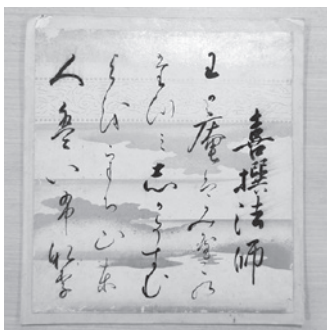 喜撰法師
わか庵はみやこの
たつみ志かそすむ
よをうち山と
人はいふなり